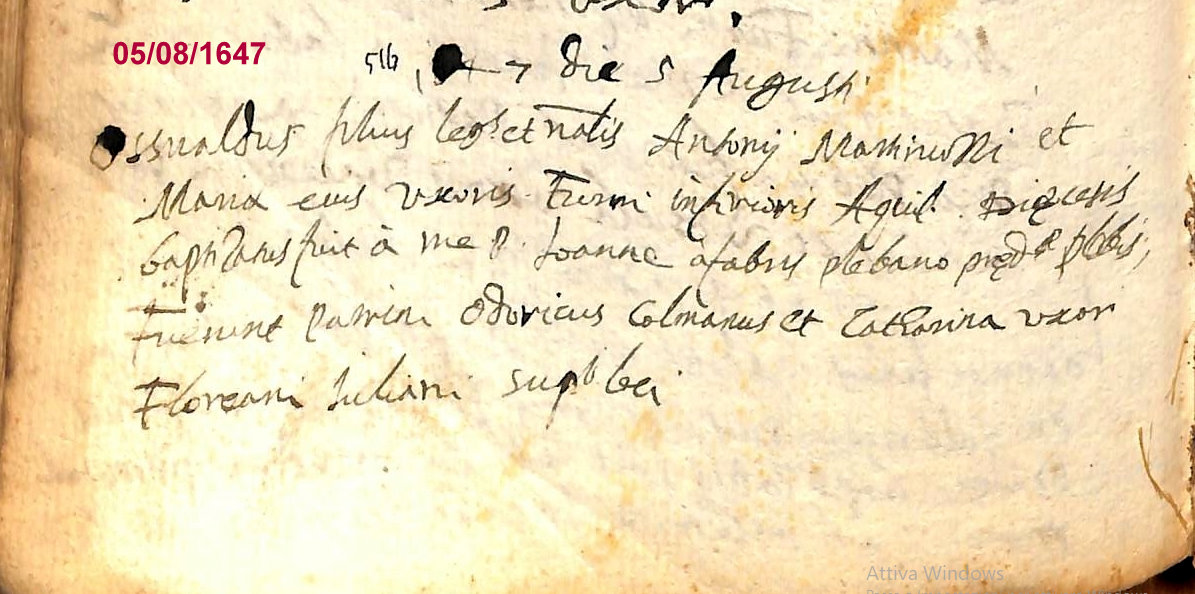 05/08/1647
die 5 Augusti
Ossualdus filius leg.s et nãlis Antonij Martinuzzi et
Maria eius Uxoris Turri inferioris Aquil. Dięcesis
baptizatus fuit à me P. Joanne à fabris plebano plebis,
Fuerunt Patrini Odoricus Colmanus et Catharina uxor
Floreani Iuliani
Attiva Windows